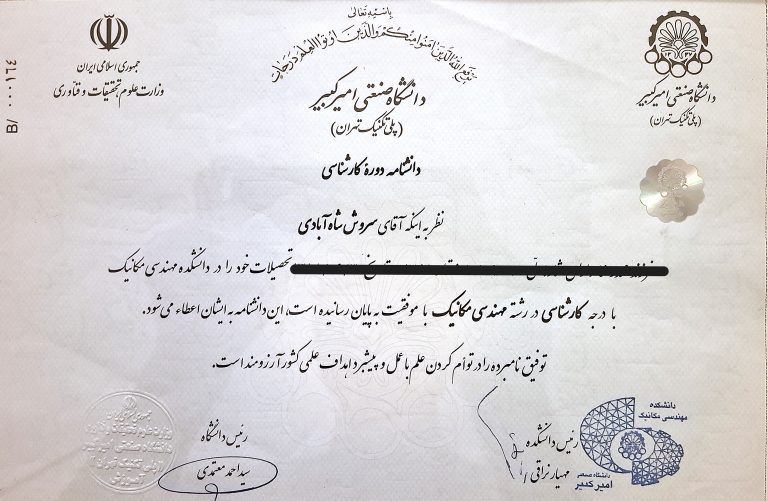 باسمه تعالی
یرفع الله الذین امنوا منکم والذین اوتوا العلم درجات
جمهوری اسلامی ایران
وزارت علوم، تحقیقات و فناوری
B/ ۰۰۰۱۶۴
دانشگاه صنعتی امیرکبیر
(پلی تکنیک تهران)
دانشگاه صنعتی امیرکبیر
(پلی تکنیک تهران)
دانشنامه دورهٔ کارشناسی
نظر به اینکه آقای سروش شاه‌آبادی
تحصیلات خود را در دانشکده مهندسی مکانیک
با درجه کارشناسی در رشته مهندسی مکانیک با موفقیت به پایان رسانیده است، این دانشنامه به ایشان اعطاء می‌شود.
توفیق نامبرده را در توأم کردن علم با عمل و پیشبرد اهداف علمی کشور آرزومند است.
دانشکده
مهندسی مکانیک
دانشگاه صنعتی
امیرکبیر
رئیس دانشکده
مهیار نراقی
رئیس دانشگاه
سید احمد معتمدی
جمهوری اسلامی ایران